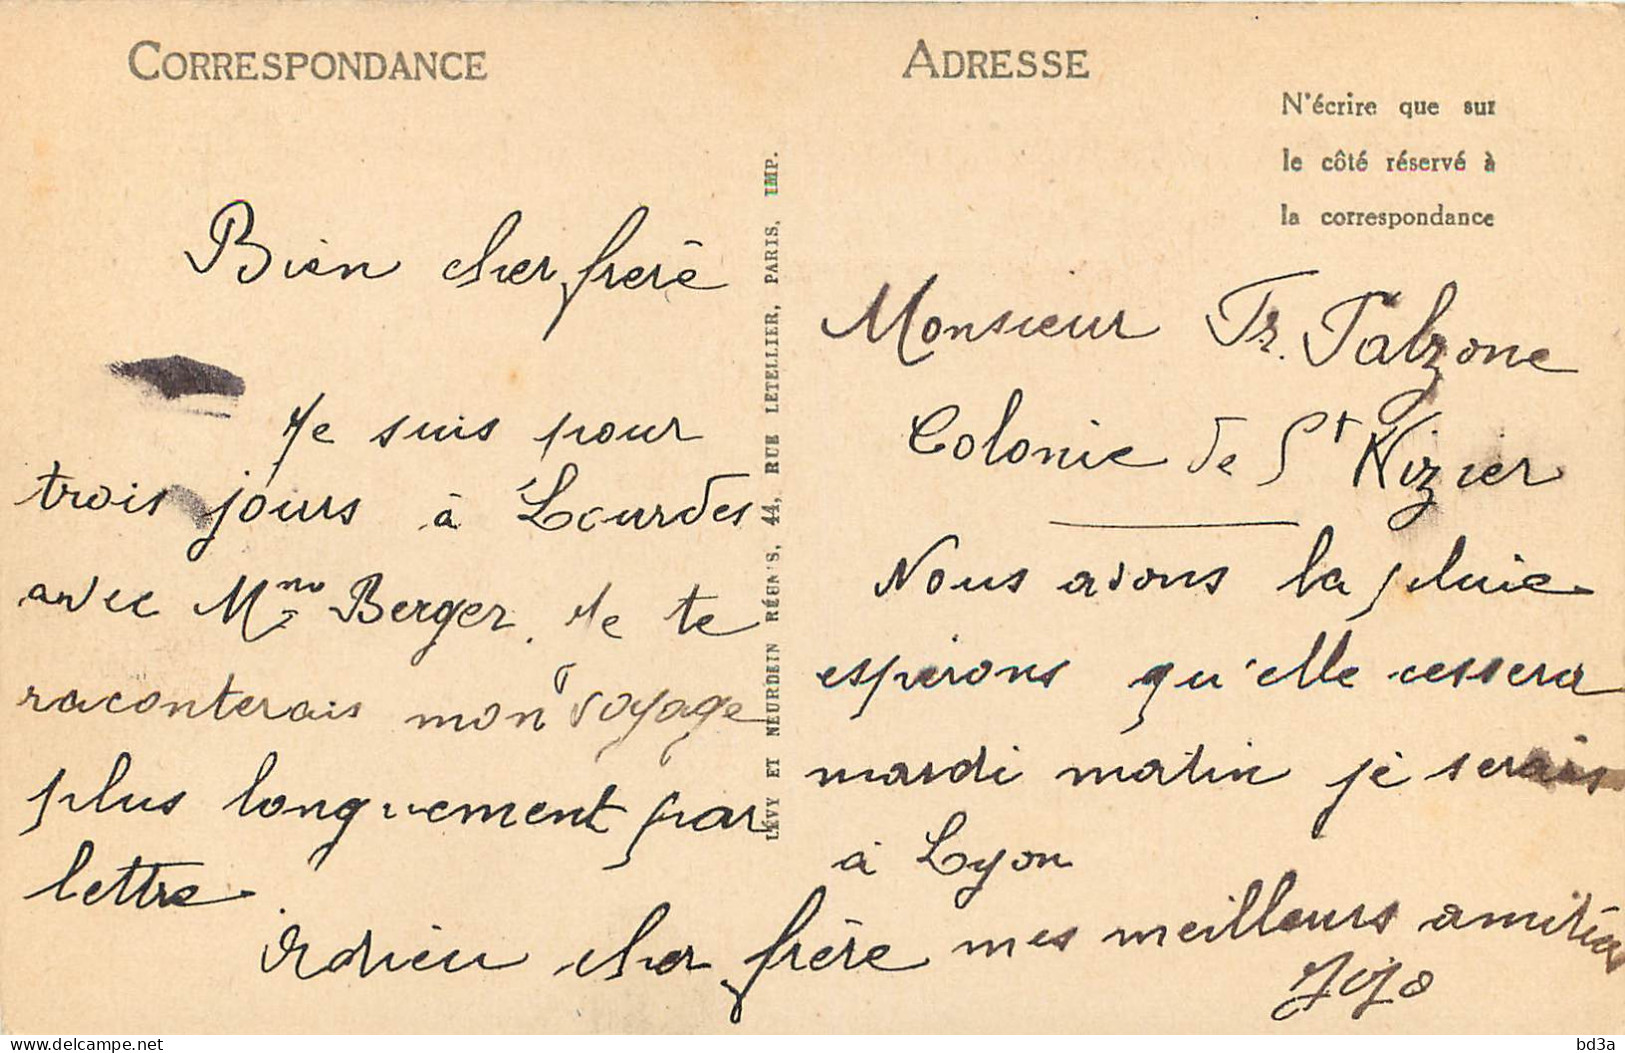 CORRESPONDANCE
Bien cher frère
Je suis pour
trois jours à Lourdes
avec Mme Berger. Je te
raconterais mon voyage
plus longuement par
lettre.
Adieu cher frère mes meilleurs amitiés
Jojo
LÉVY ET NEURDEIN RÉUNIS, 44, RUE LETELLIER, PARIS, IMP.
ADRESSE
N'écrire que sur
le côté réservé à
la correspondance
Monsieur Fr. Falzone
Colonie de St Nizier
Nous avons la pluie
esperons qu'elle cessera
mardi matin je serais
à Lyon
bd3a